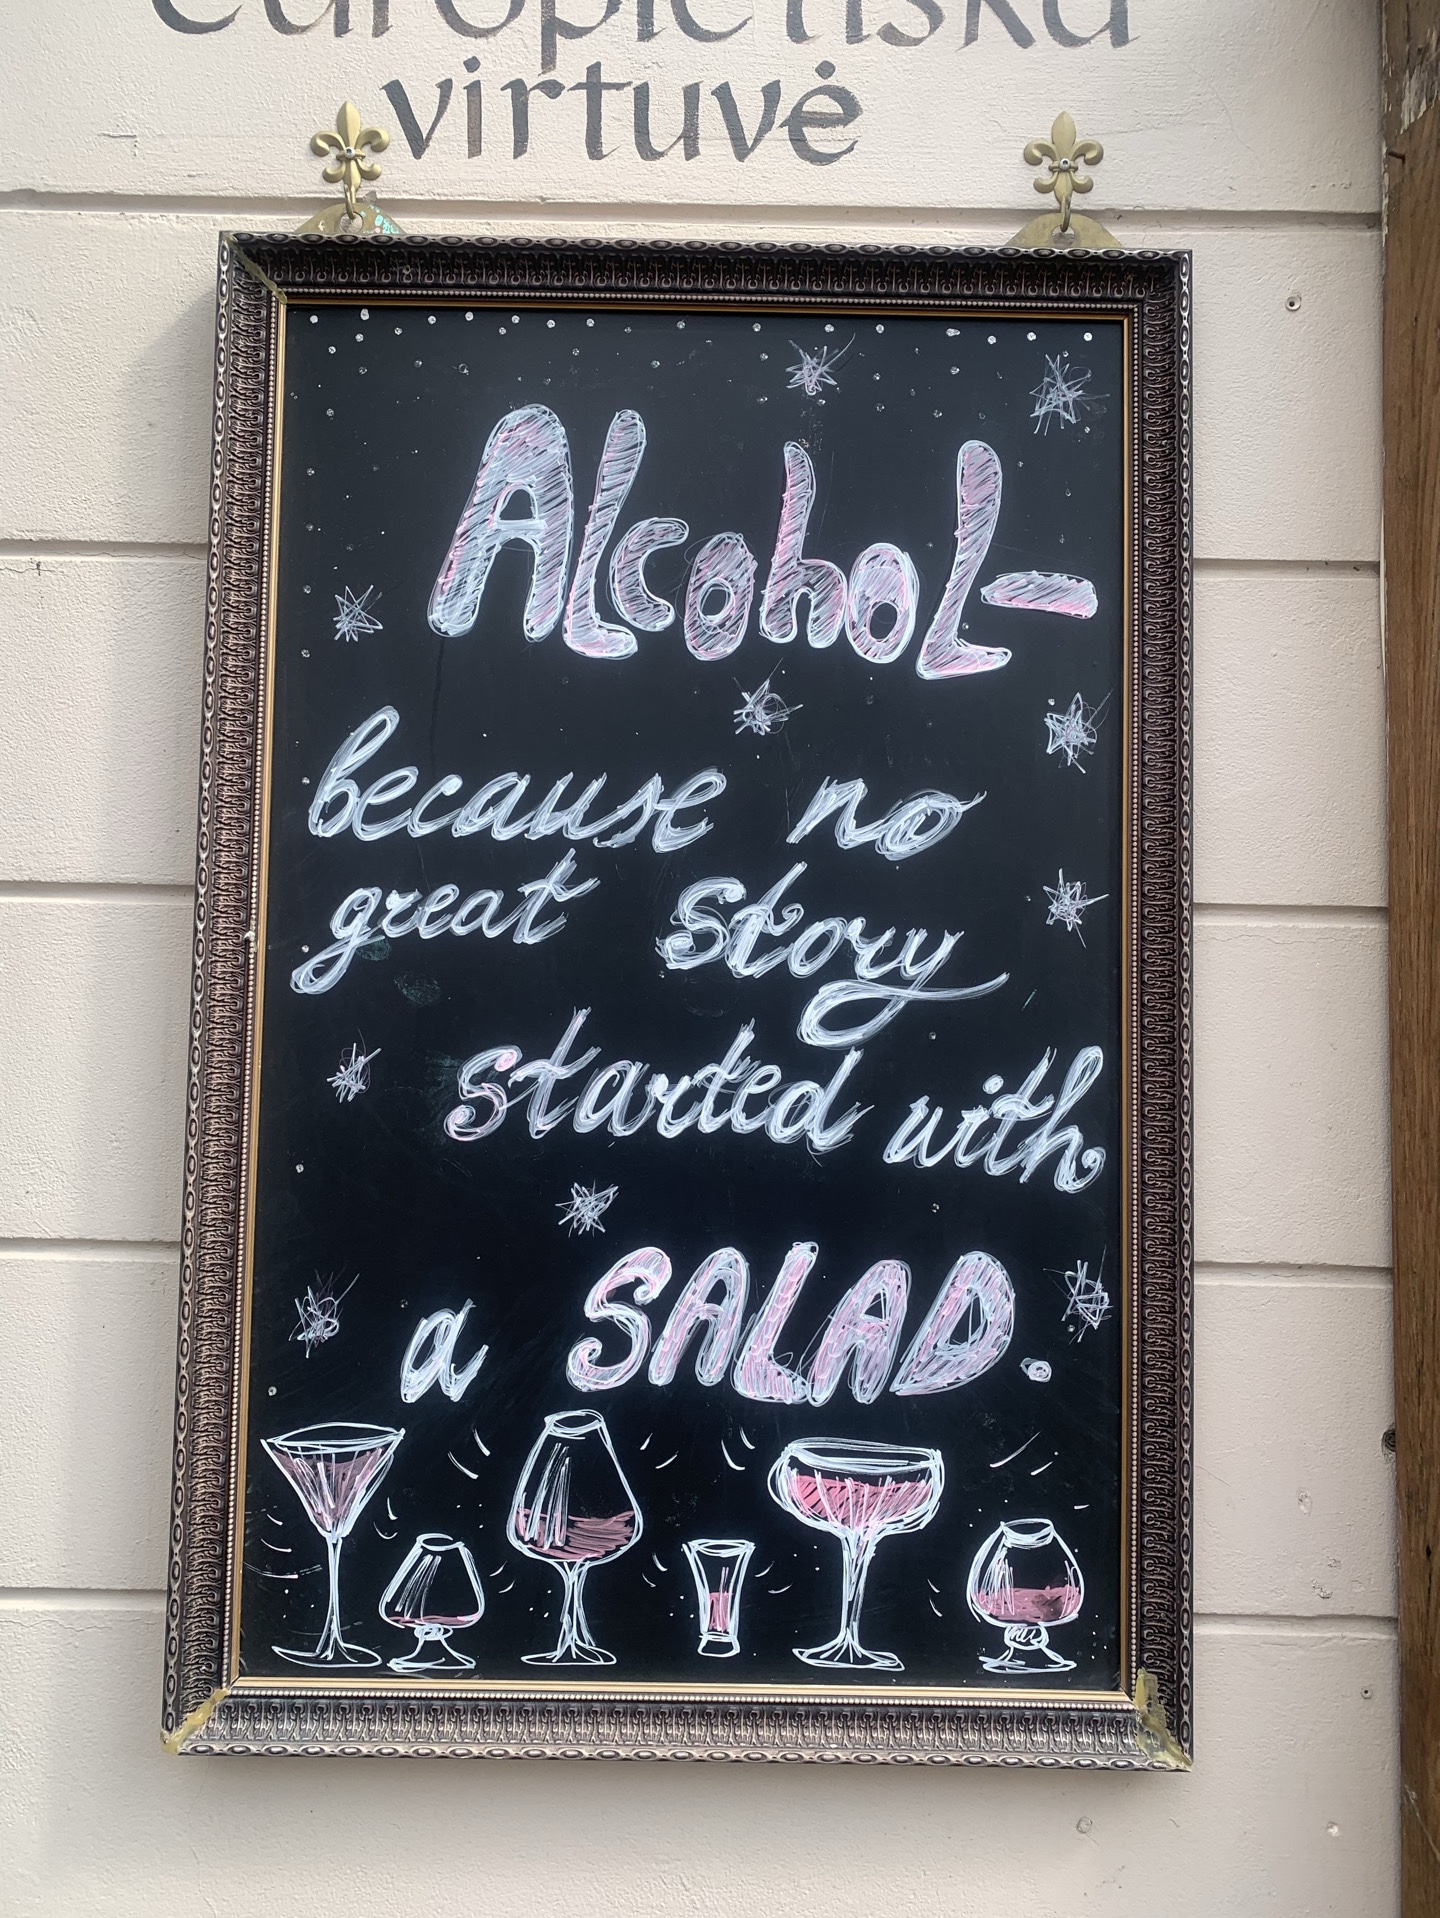 europietiška
virtuvė
Alcohol-
because no
great story
started with
a SALAD.